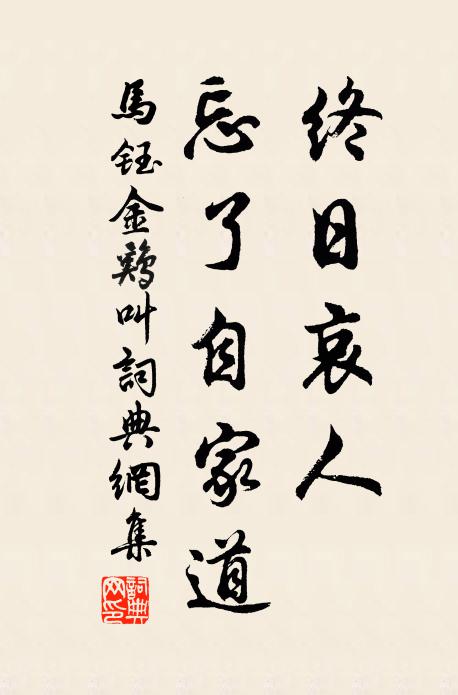 終日哀人
忘了自家道
馬鈺金鷄叫詞典網集
詞典網印